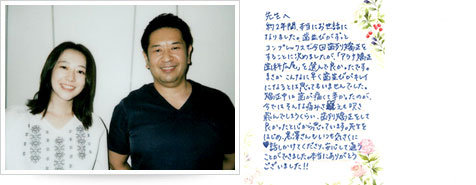 先生へ
約2年間、本当にお世話に
なりました。歯並びがずっと
コンプレックスで今回歯列矯正を
することに決めましたが、「アクタ矯正
歯科」を選んで良かったです。
まさかこんなに早く歯並びがキレイ
になるとは思ってもいませんでした。
矯正中は歯が痛くて辛かったのが、
今ではそんな痛みさえも吹き
飛んでしまうくらい、歯列矯正をして
良かったと心から思っています。先生を
はじめ、黒澤さんもいつも気さくに
話しかけてくださり、安心して通う
ことができました。本当にありがとう
ございました!!